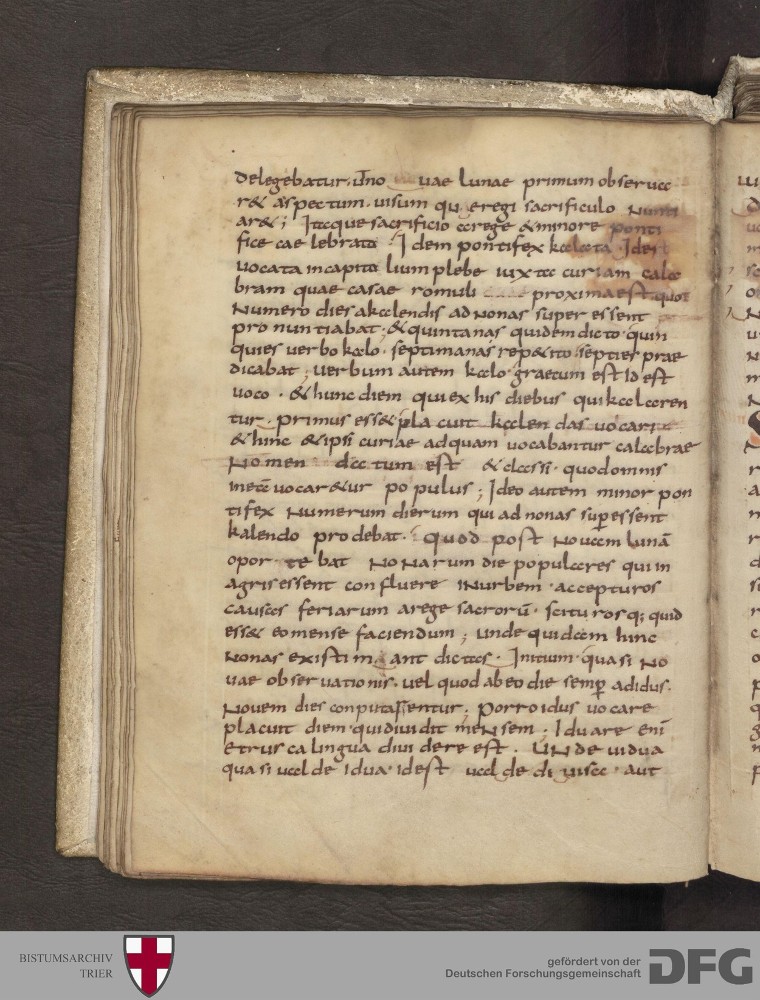 delegebatur· ut no uae lunae primum obserua
r& aspectum· uisum qu regi sacrificulo nunti
ar&; Itaque sacrificio arege & minore ponti
fice cae lebrato· Idem pontifex kalata· Idest
uocata in capito lium plebe iuxta curiam cala
bram quae casae romuli proxima est quot
Numero dies akalendis ad nonas super essent
pro nuntiabat; & quintanas quidem dicto quin
quies uerbo kalo· septimanas rep&ito septies prae
dicabat; uerbum autem kalo graecum est id est
uoco· & hunc diem qui ex his diebus qui kalaren
tur· primus ess& pla cuit kalen das uocari
& hinc & ipsi curiae ad quam uocabantur calabrae
Nomen da tum est & classi· quod omnis
in eā uocar&ur po pulus; Ideo autem minor pon
tifex Numerum dierum qui ad nonas suꝑessent
kalendo pro debat· quod post Nouam lunā
opor te bat NoNarum die populares qui in
agris essent con fluere iNurbem· accepturos
causas feriarum arege sacrorū· scitu rosq; quid
ess& eo mense faciendum; unde quidam hinc
Nonas existim ant dictas· Initium quasi No
uae obser uationis· uel quod ab eo die semꝑ ad idus·
Nouem dies conputassentur; Porro idus uo care
placuit diem qui diuidit meNsem· Iduare enī
etrusca lingua diui dere est. UNde uidua
qua si ualde idua· id est ualde di uisa· aut
BISTUMSARCHIV
TRIER
gefördert von der
Deutschen Forschungsgemeinschaft
DFG